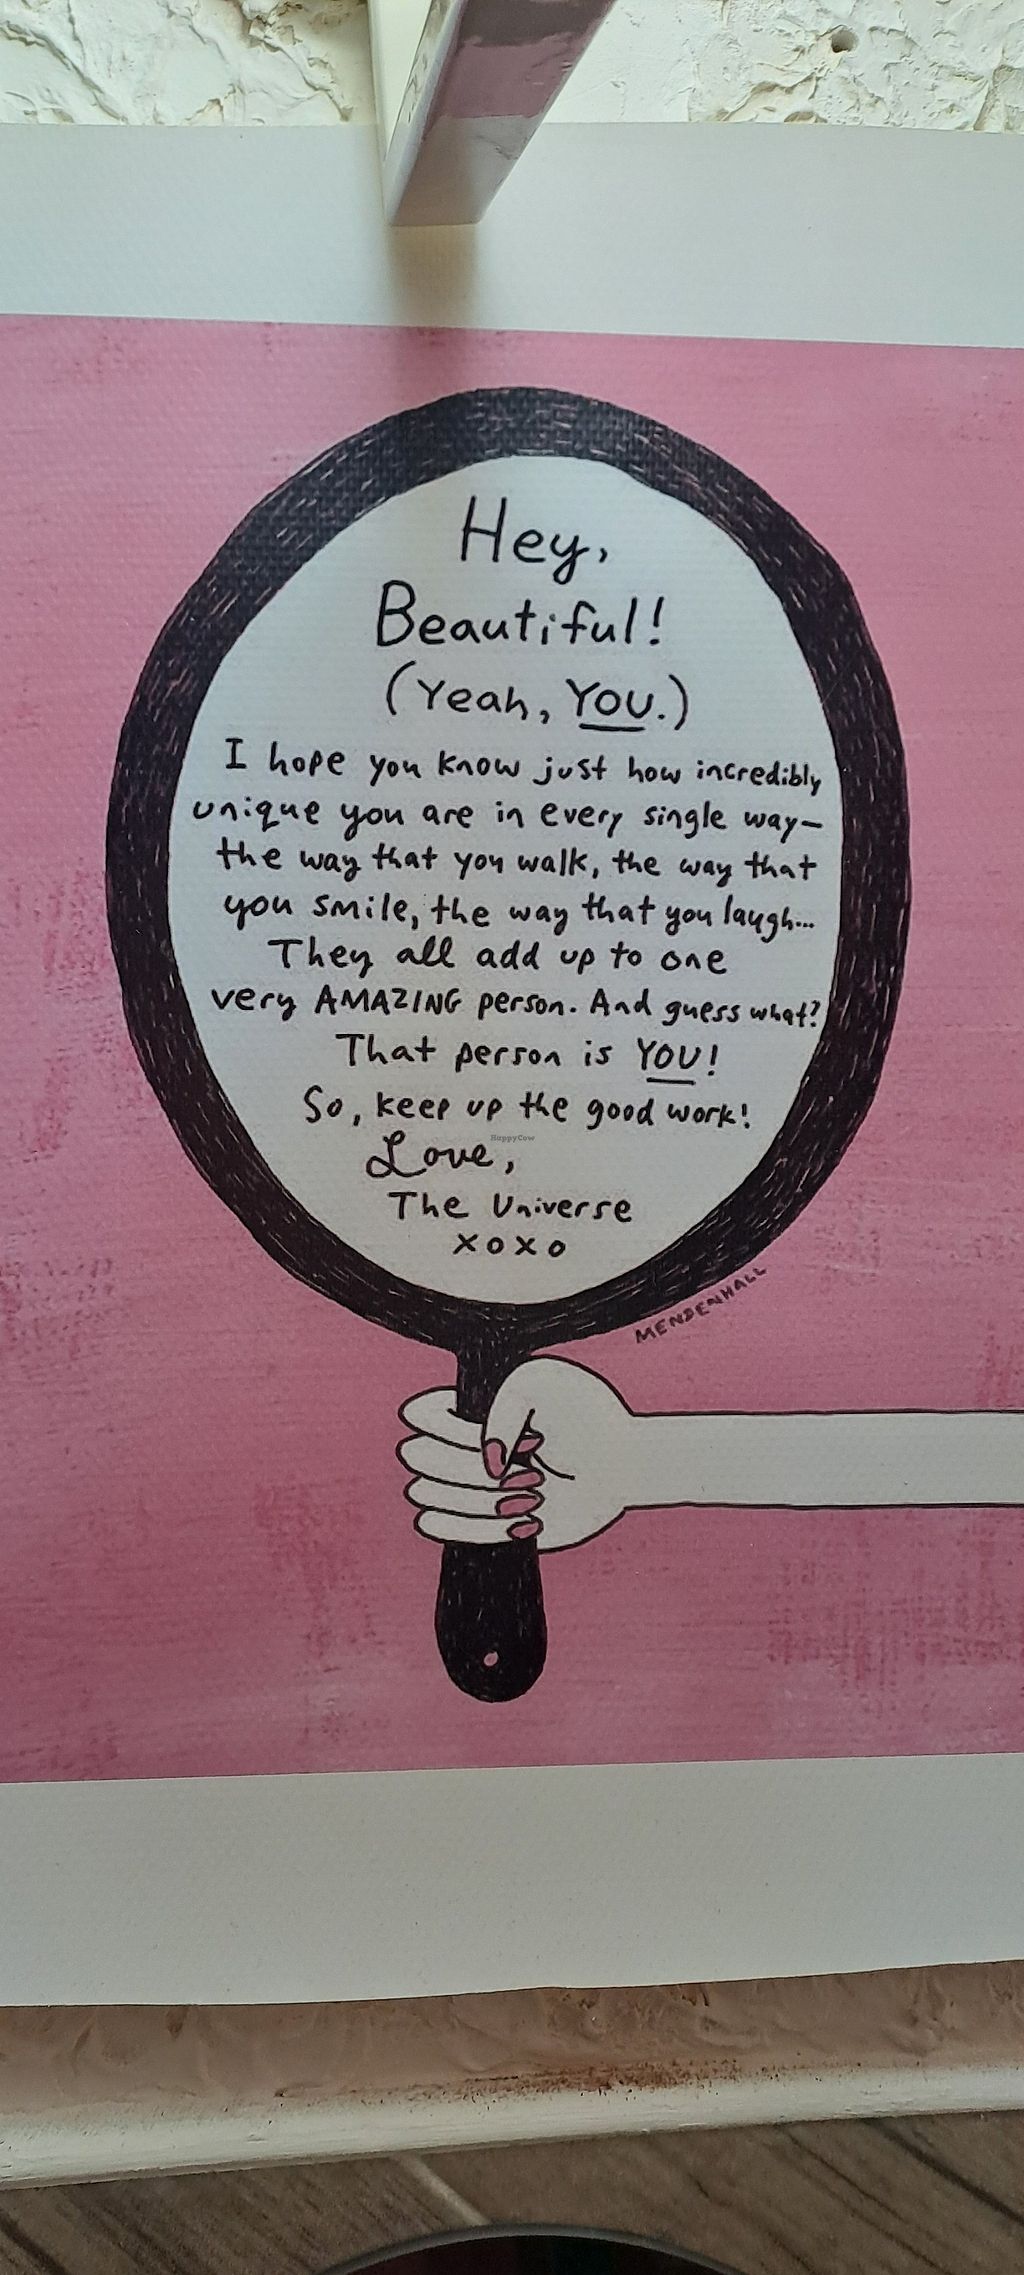 Hey,
Beautiful!
(Yeah, YOU.)
I hope you know just how incredibly
unique you are in every single way—
the way that you walk, the way that
you smile, the way that you laugh...
They all add up to one
very AMAZING person. And guess what?
That person is YOU!
So, keep up the good work!
HappyCow
Love,
The Universe
xoxo
MENDENHALL